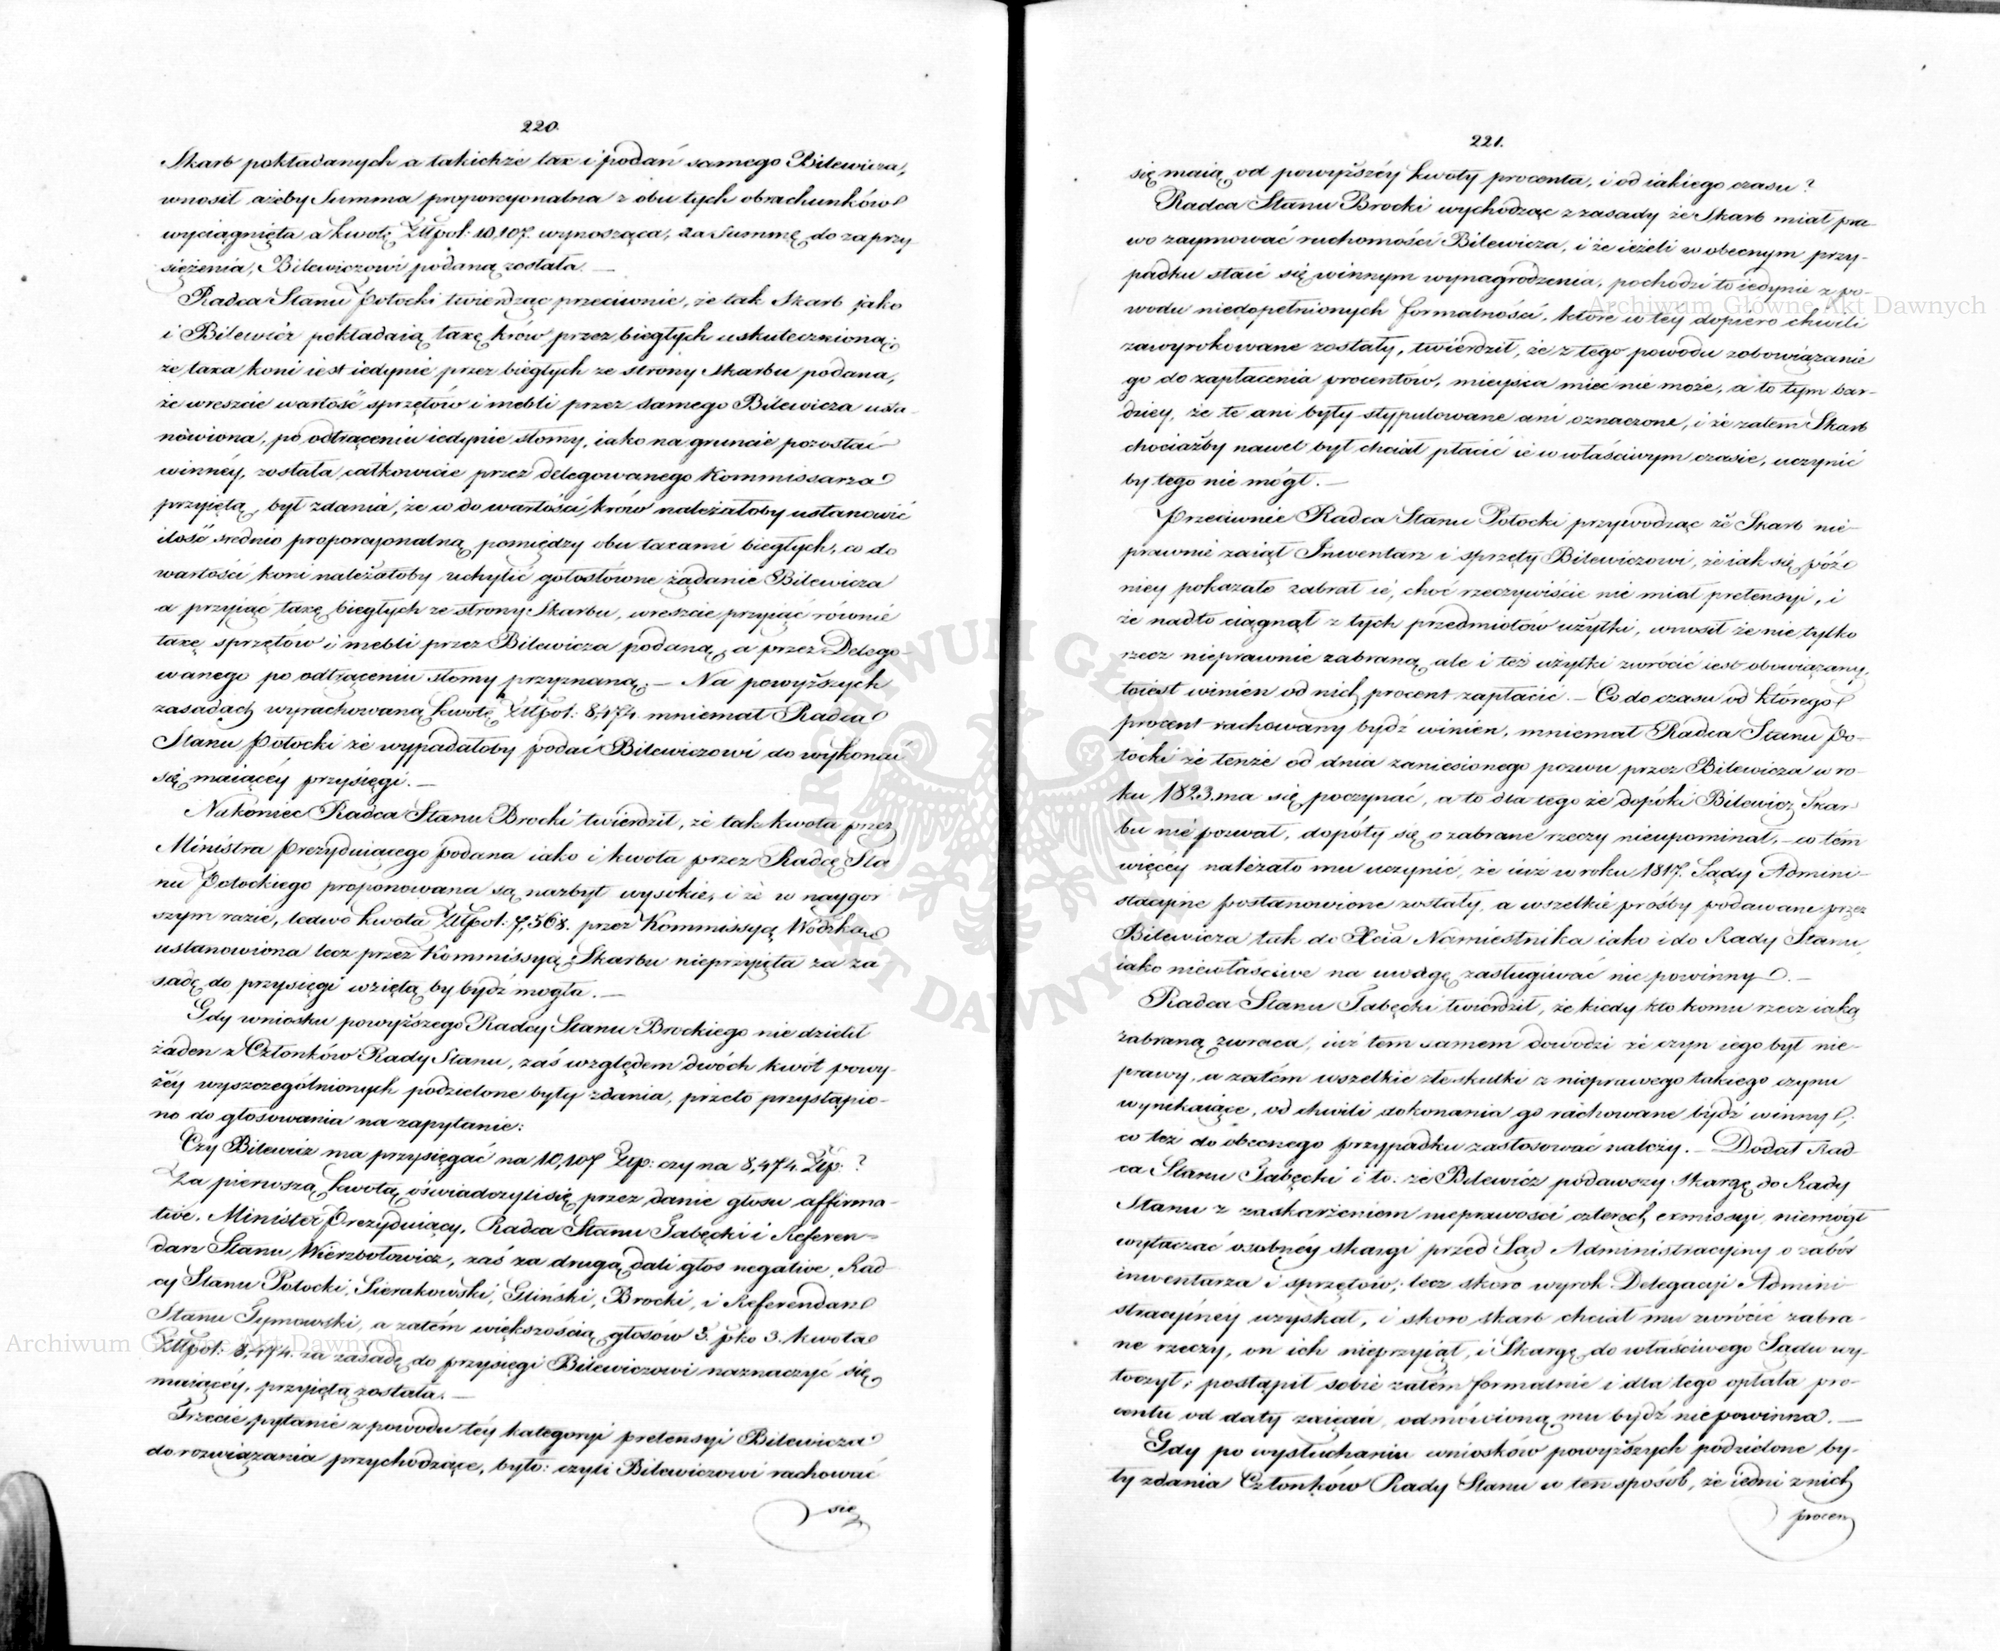 220.
Skarb pokładanych a takichże tax i podań samego Bilewicza,
wnosił ażeby Summa proporcyonalna z obu tych obrachunków
wyciągnięta a kwotę Złłpol: 10,107. wynosząca, za Summę do zaprzy
siężenia, Bilewiczowi podaną została. —
Radca Stanu Potocki twierdząc przeciwnie, że tak Skarb jako
i Bilewicz pokładaią taxę krów przez biegłych uskutecznioną;
że taxa koni iest iedynie przez biegłych ze strony Skarbu podana,
że wreszcie wartość sprzętów i mebli przez samego Bilewicza usta-
nowiona, po odtrąceniu iedynie słomy, iako na gruncie pozostać
winnéy, została całkowicie przez delegowanego Kommissarza
przyiętą, był zdania, że co do wartości krów należałoby ustanowić
ilość srednio proporcyonalną pomiędzy obu taxami biegłych, co do
wartości koni należałoby uchylić gołosłowne żądanie Bilewicza
a przyiąć taxę biegłych ze strony Skarbu, wreszcie przyiąć równie
taxę sprzętów i mebli przez Bilewicza podaną, a przez Delego-
wanego po odtrąceniu słomy przyznaną. — Na powyższych
zasadach wyrachowaną kwotę Złłpol: 8,474. mniemał Radca
Stanu Potocki że wypadałoby podać Bilewiczowi do wykonać
się maiącéy przysięgi. —
Nakoniec Radca Stanu Brocki twierdził, że tak kwota przez
Ministra Prezyduiącego podana iako i kwota przez Radcę Sta
nu Potockiego proponowana są nazbyt wysokie, i że w naygor
szym razie, ledwo kwota Złłpol: 7,568. przez Kommissyą Wodzka
ustanowiona lecz przez Kommissyą Skarbu nieprzyięta za za
sadę do przysięgi wziętą by bydź mogła. —
Gdy wniosku powyższego Radcy Stanu Brockiego nie dzielił
żaden z Członków Rady Stanu, zaś względem dwóch kwot powy-
żéy wyszczególnionych podzielone były zdania, przeto przystąpio-
no do głosowania na zapytanie:
Czy Bilewicz ma przysięgać na 10,107 Złp: czy na 8,474. Złp: ?
Za pierwszą kwotą oświadczyli się przez danie głosu affirma-
tive, Minister Prezyduiący, Radca Stanu Gabęcki i Referen-
darz Stanu Wierzbołowicz, zaś za drugą dali głos negative, Rad-
cy Stanu Potocki, Sierakowski, Gliński, Brocki, i Referendarz
Stanu Tymowski, a zatém większością głosów 5. pko 3. kwota
Złłpol: 8,474. za zasadę do przysięgi Bilewiczowi naznaczyć się
maiącey, przyiętą została. —
Trzecie pytanie z powodu téy kategoryi pretensyi Bilewicza
do rozwiązania przychodzące, było: czyli Bilewiczowi rachować
się
221.
się maią od powyższéy kwoty procenta, i od iakiego czasu ?
Radca Stanu Brocki wychodząc z zasady że Skarb miał pra-
wo zaymować ruchomości Bilewicza, i że ieżeli w obecnym przy-
padku staie się winnym wynagrodzenia, pochodzi to iedynie z po-
wodu niedopełnionych formalności, które w tey dopiero chwili
zawyrokowane zostały, twierdził, że z tego powodu zobowiązanie
go do zapłacenia procentów, mieysca mieć nie może, a to tym bar-
dziey, że te ani były stypulowane ani oznaczone, i że zatem Skarb
chociażby nawet był chciał płacić ie w właściwym czasie, uczynić
by tego nie mógł. —
Przeciwnie Radca Stanu Potocki przywodząc że Skarb nie-
prawnie zaiął Inwentarz i sprzęty Bilewiczowi, że iak się póź
niey pokazało zabrał ie, choć rzeczywiście nie miał pretensyi, i
że nadto ciągnął z tych przedmiotów użytki, wnosił że nie tylko
rzecz nieprawnie zabraną ale i też użytki zwrócić iest obowiązany,
toiest winien od nich procent zapłacić. — Co do czasu od którego
procent rachowany bydź winien, mniemał Radca Stanu Po-
tocki że tenże od dnia zaniesionego pozwu przez Bilewicza w ro-
ku 1823. ma się poczynać, a to dla tego że dopóki Bilewicz Skar
bu nie pozwał, dopóty się o zabrane rzeczy nieupominał, — co tém
więcéy należało mu uczynić, że iuż w roku 1817. Sądy Admini-
stacyine postanowione zostały, a wszelkie prośby podawane przez
Bilewicza tak do Xcia Namiestnika iako i do Rady Stanu,
iako niewłaściwe na uwagę zasługiwać nie powinny. —
Radca Stanu Gabęcki twierdził, że kiedy kto komu rzecz iaką
zabraną zwraca, iuż tem samem dowodzi że czyn iego był nie-
prawy, a zatém wszelkie złe skutki z nieprawego takiego czynu
wynikaiące, od chwili dokonania go rachowane bydź winny;
co też do obecnego przypadku zastosować należy. — Dodał Rad
ca Stanu Gabęcki i to: że Bilewicz podawszy skargę do Rady
Stanu z zaskarżeniem nieprawości czterech exmissyi, niemógł
wytaczać osobnéy skargi przed Sąd Administracyiny o zabór
inwentarza i sprzętów; lecz skoro wyrok Delegacyi Admini-
stracyinéy uzyskał, i skoro skarb chciał mu zwrócić zabra-
ne rzeczy, on ich nieprzyiął, i Skargę do właściwego Sądu wy-
toczył; postąpił sobie zatém formalnie i dla tego opłata pro-
centu od daty zaięcia, odmówioną mu bydź nie powinna. —
Gdy po wysłuchaniu wniosków powyższych podzielone by-
ły zdania Członków Rady Stanu w ten sposób, że iedni z nich
procen
Archiwum Główne Akt Dawnych
Archiwum Główne Akt Dawnych
ARCHIWUM GŁÓWNE AKT DAWNYCH